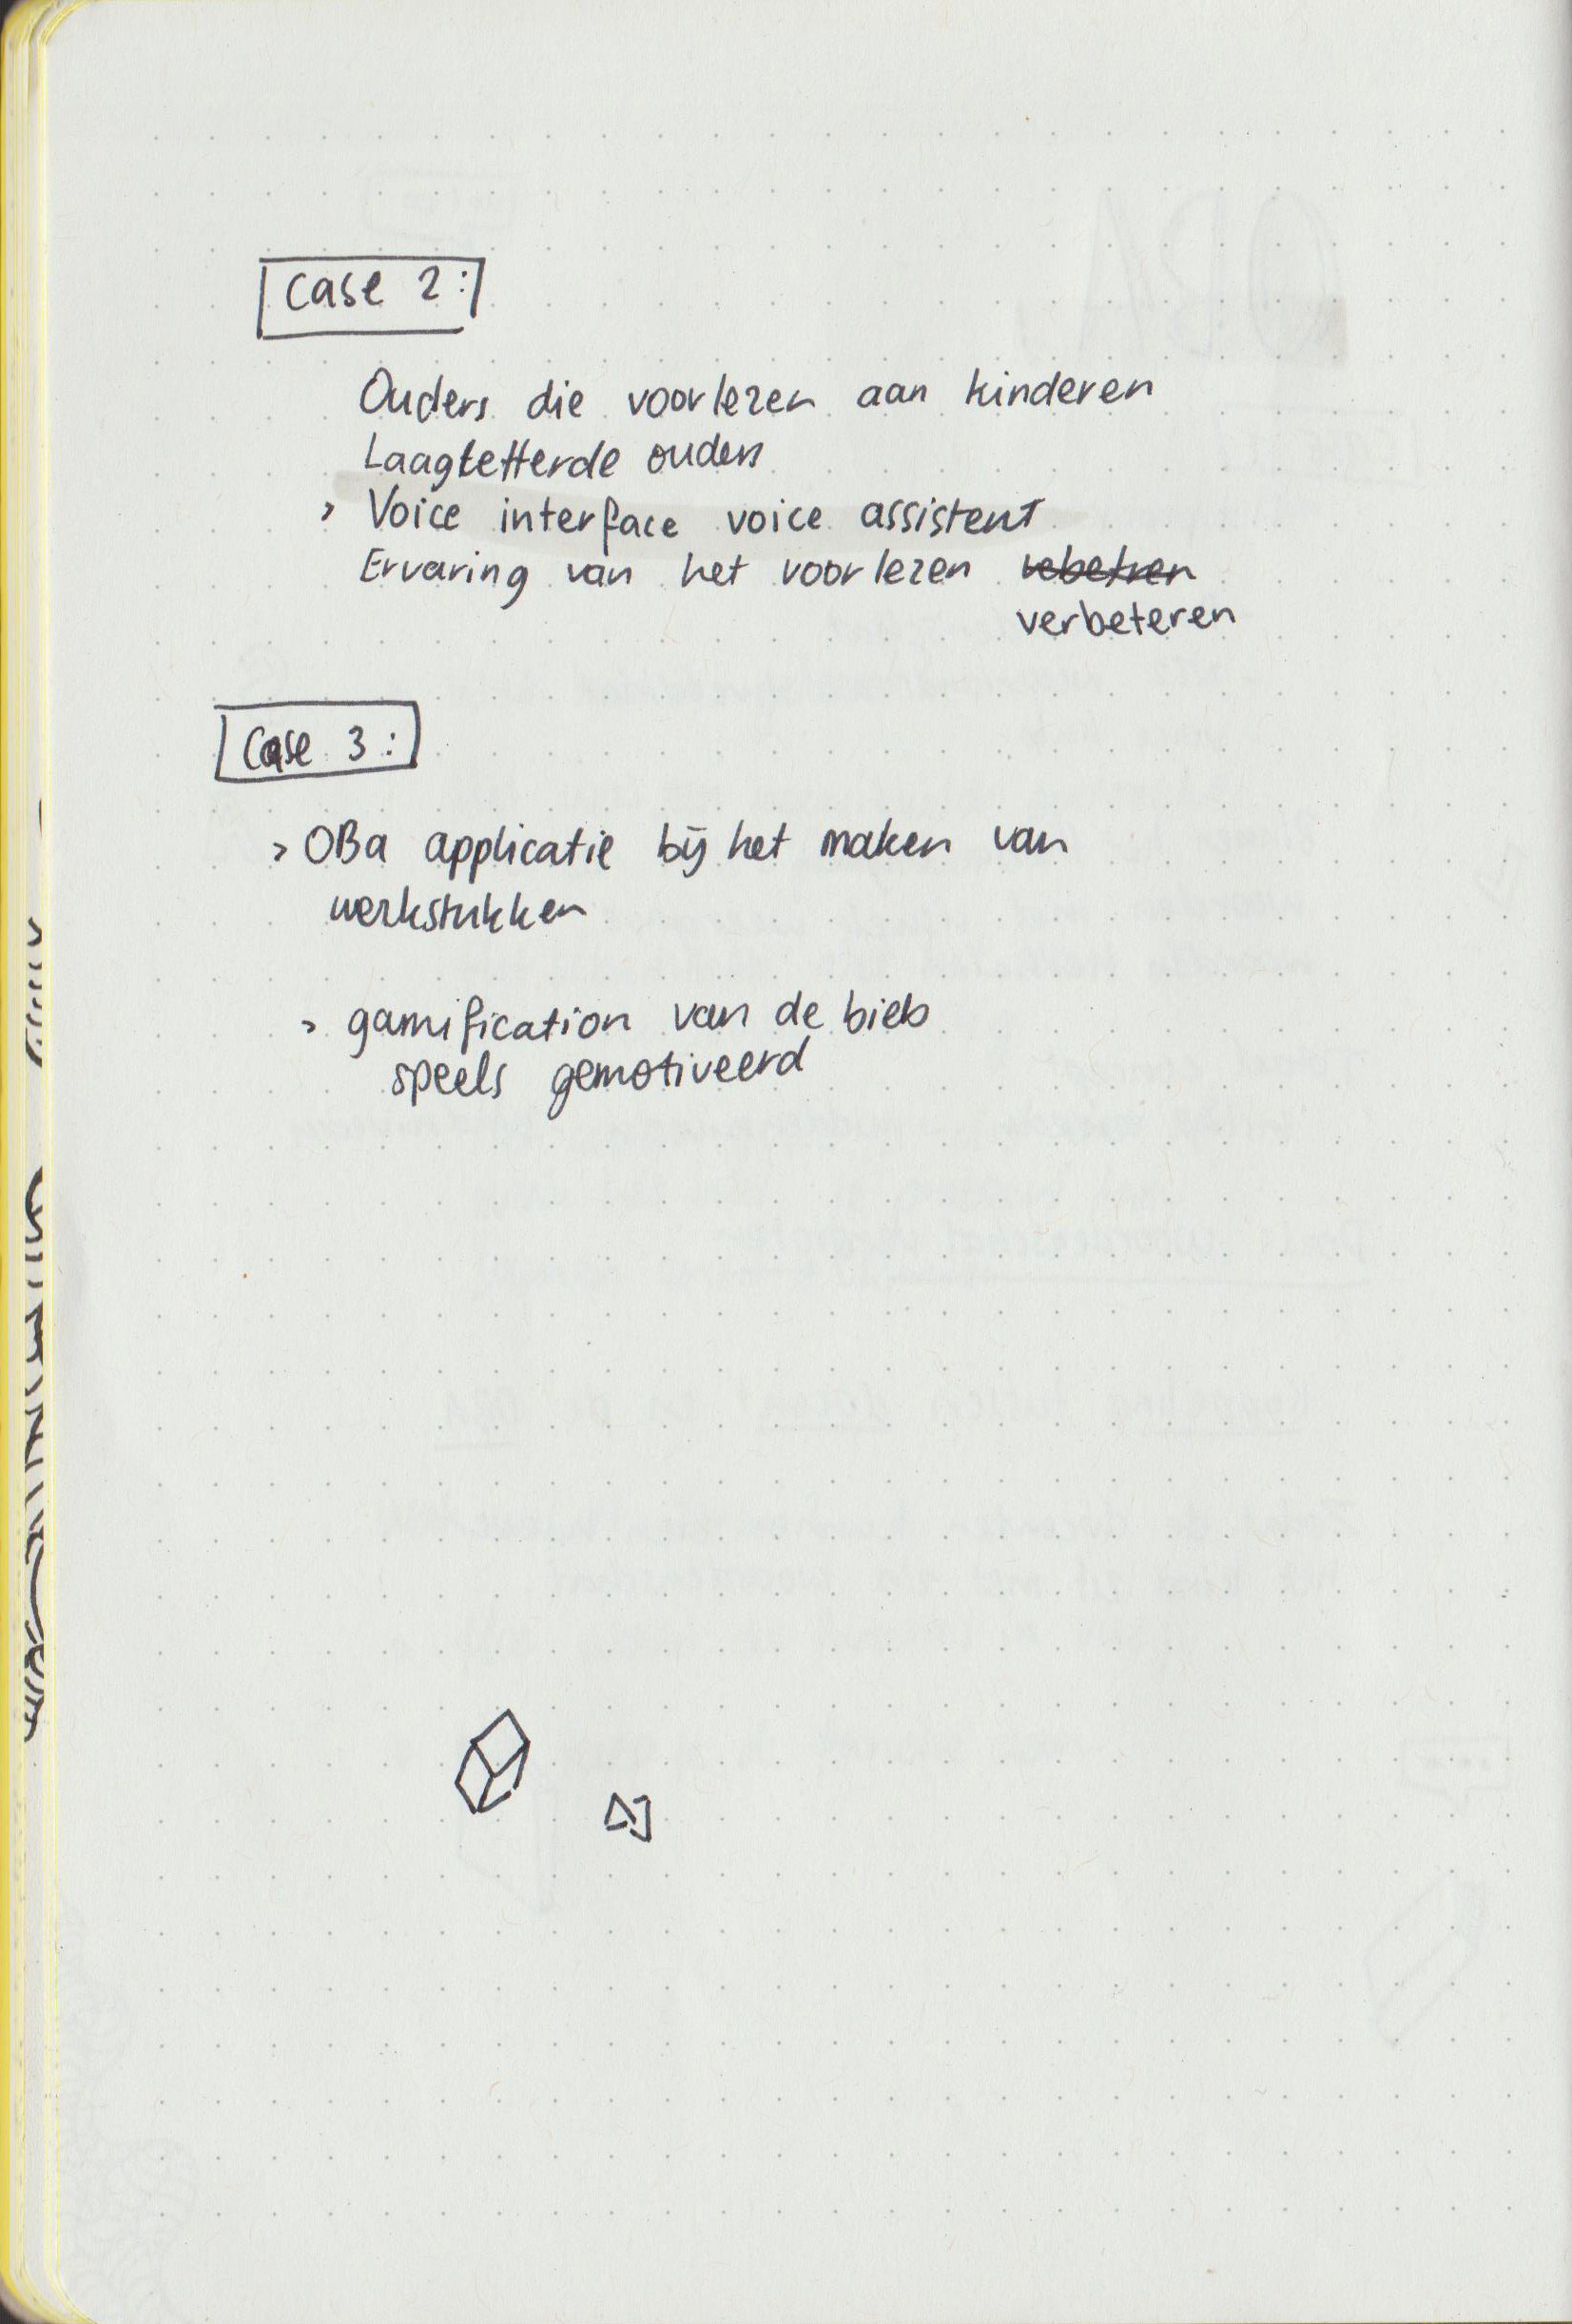 Case 2:
Ouders die voorlezen aan kinderen
Laagletterde ouders
> Voice interface voice assistent
Ervaring van het voorlezen vebetren
verbeteren
Case 3:
> OBa applicatie bij het maken van
werkstukken
> gamification van de bieb
speels gemotiveerd